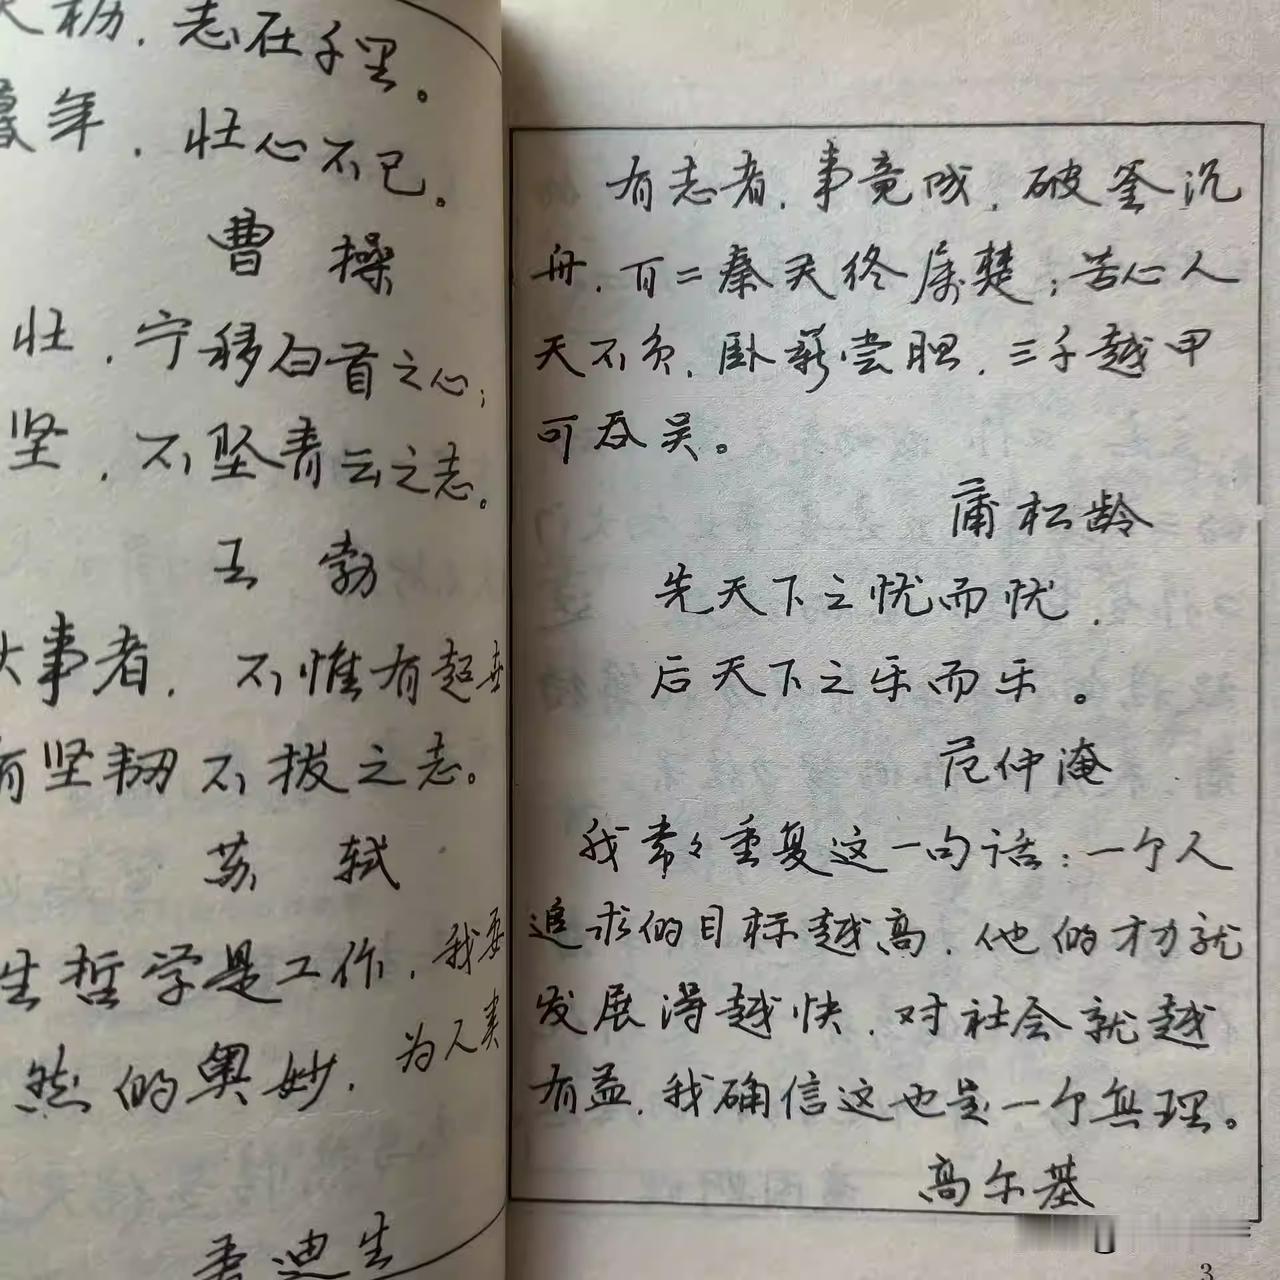 枥，志在千里。
暮年，壮心不已。
曹 操
壮，宁移白首之心；
坚，不坠青云之志。
王 勃
大事者，不惟有超世
有坚韧不拔之志。
苏 轼
生哲学是工作，我要
然的奥妙，为人类
迪生
有志者，事竟成，破釜沉
舟，百二秦关终属楚；苦心人
天不负，卧薪尝胆，三千越甲
可吞吴。
蒲松龄
先天下之忧而忧，
后天下之乐而乐。
范仲淹
我常々重复这一句话：一个人
追求的目标越高，他的才力就
发展得越快，对社会就越
有益，我确信这也是一个真理。
高尔基
3